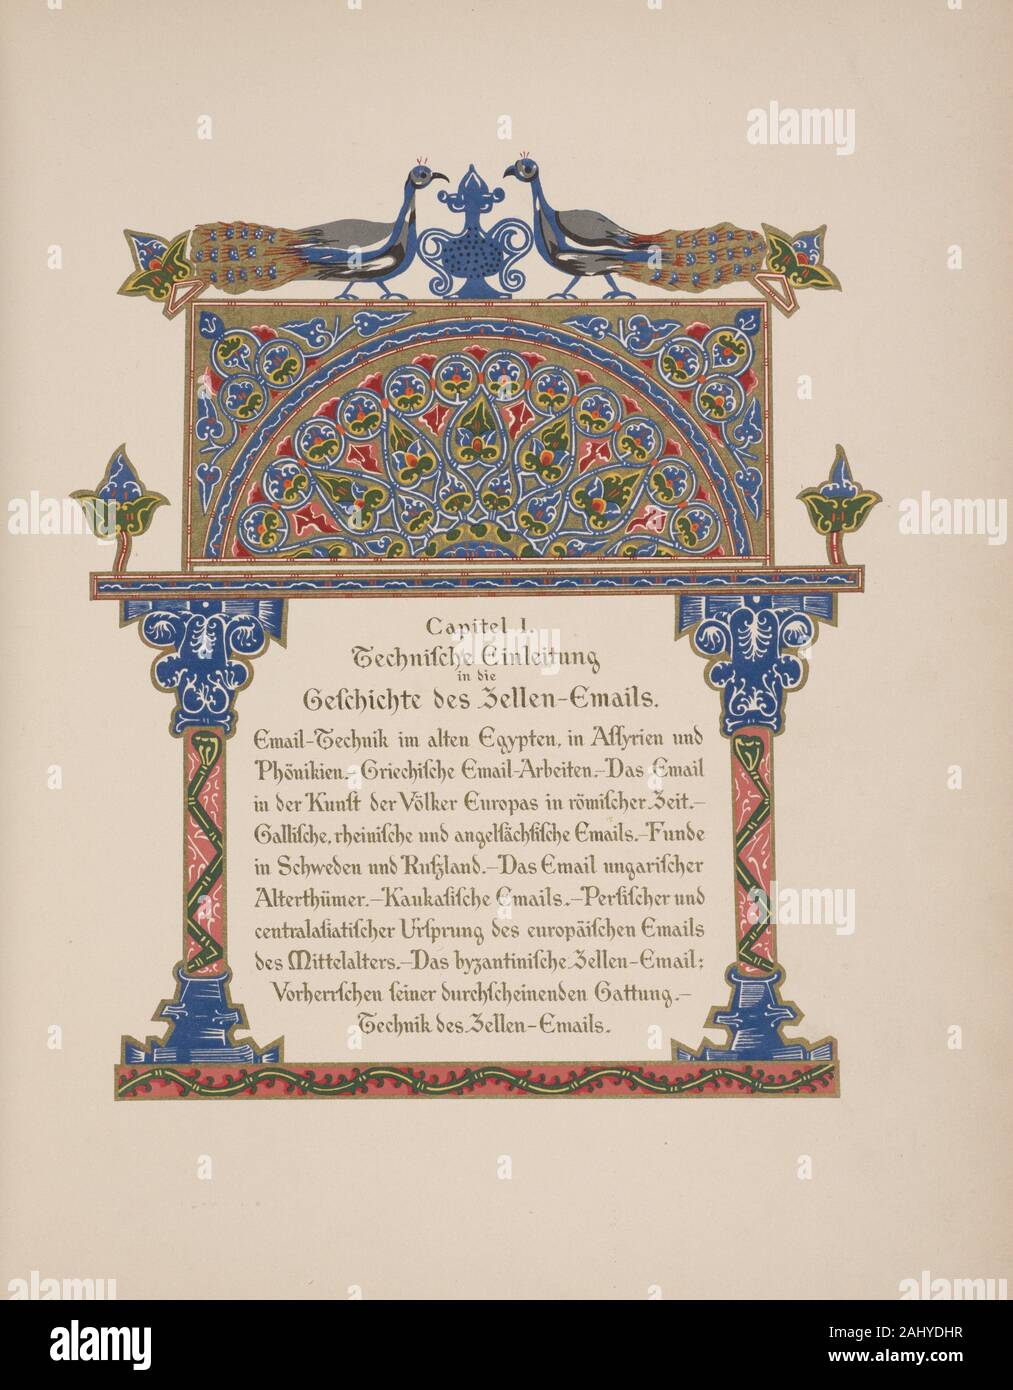 Capitel I.
Technische Einleitung
in die
Geschichte des Zellen-Emails.
Email-Technik im alten Egypten, in Assyrien und
Phönikien.-Griechische Email-Arbeiten.-Das Email
in der Kunst der Völker Europas in römischer Zeit.-
Gallische, rheinische und angelsächsische Emails.-Funde
in Schweden und Rußland.-Das Email ungarischer
Alterthümer.-Kaukasische Emails.-Persischer und
centralasiatischer Ursprung des europäischen Emails
des Mittelalters.-Das byzantinische Zellen-Email:
Vorherrschen seiner durchscheinenden Gattung.-
Technik des Zellen-Emails.
alamy
Image ID: 2AHYDHR
www.alamy.com